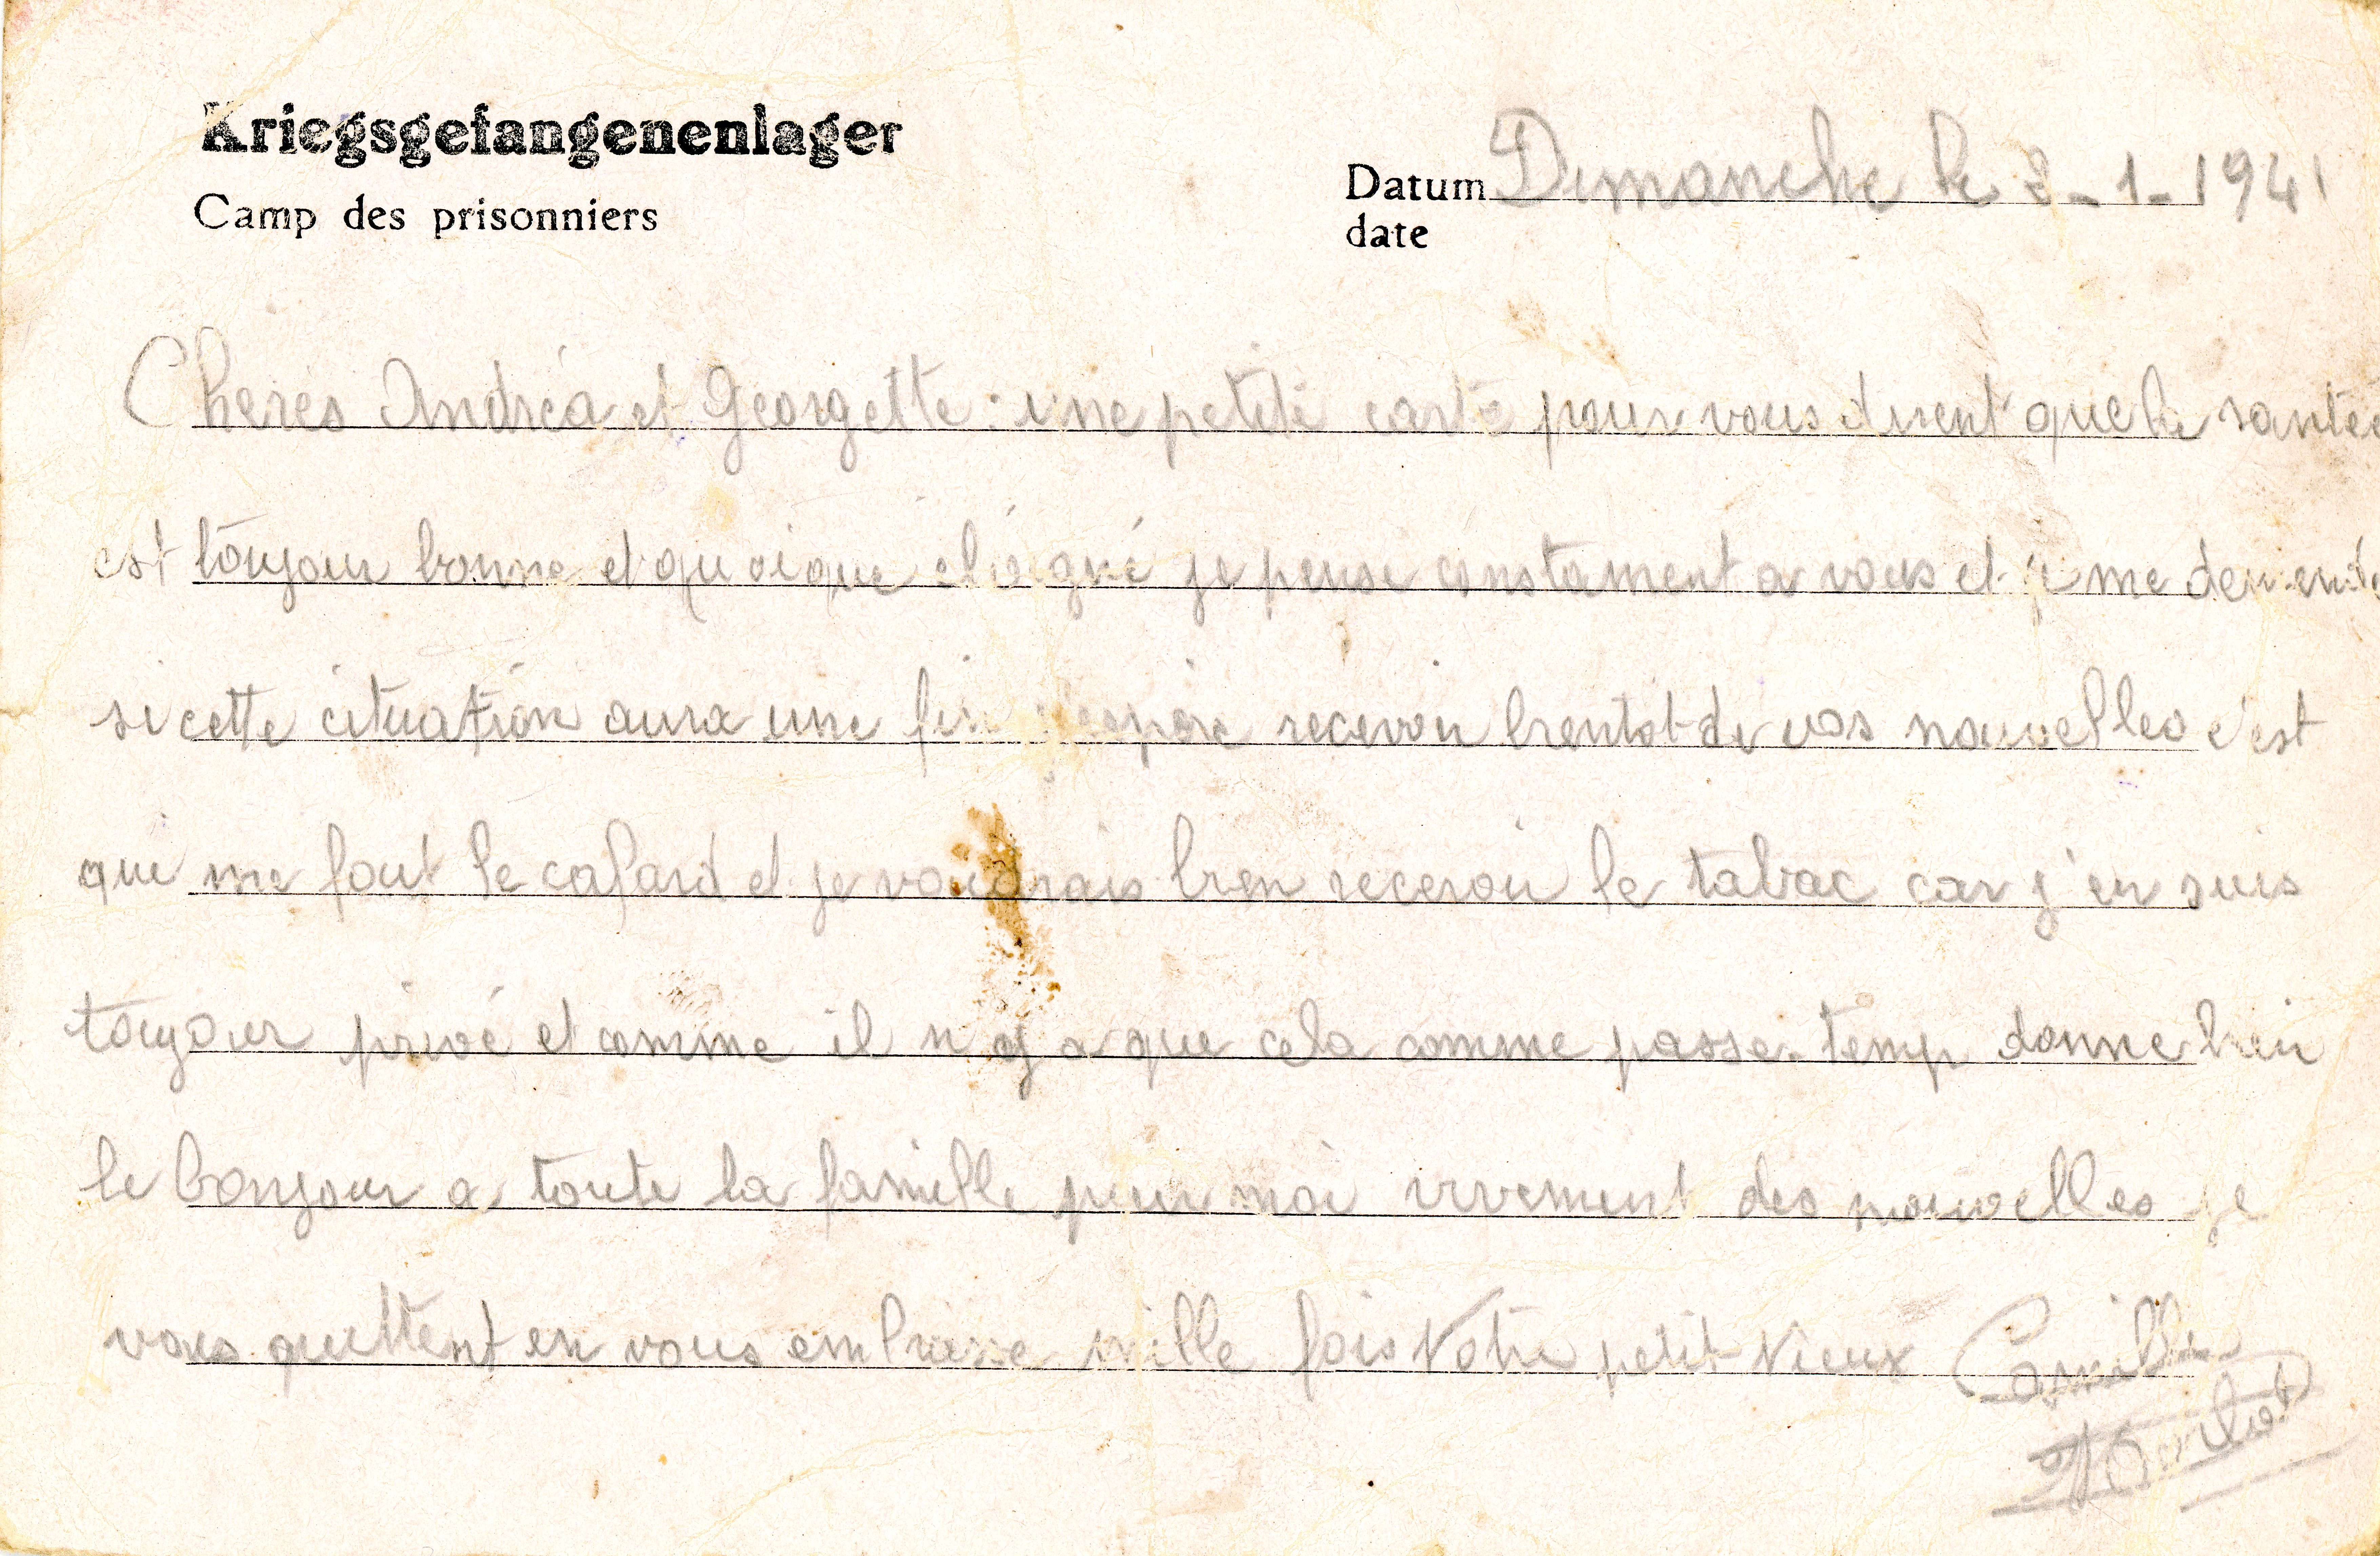 Kriegsgefangenenlager
Camp des prisonniers
Datum Dimanche le 3-1-1941
date
Cheres Andréa et Georgette : une petite carte pour vous dirent que la santée
est toujour bonne et quoique eloigné je pense constament a vous et je me demende
si cette cituation aura une fin j'espère recevoir bientot de vos nouvelles c'est
que me fout le cafard et je voudrais bien recevoir le tabac car j'en suis
toujour privé et comme il n'y a que cela comme passe-temp donne bien
le bonjour a toute la famille pour moi vivement des nouvelles je
vous quittent en vous embrasse mille fois Votre petit Vieux Camille